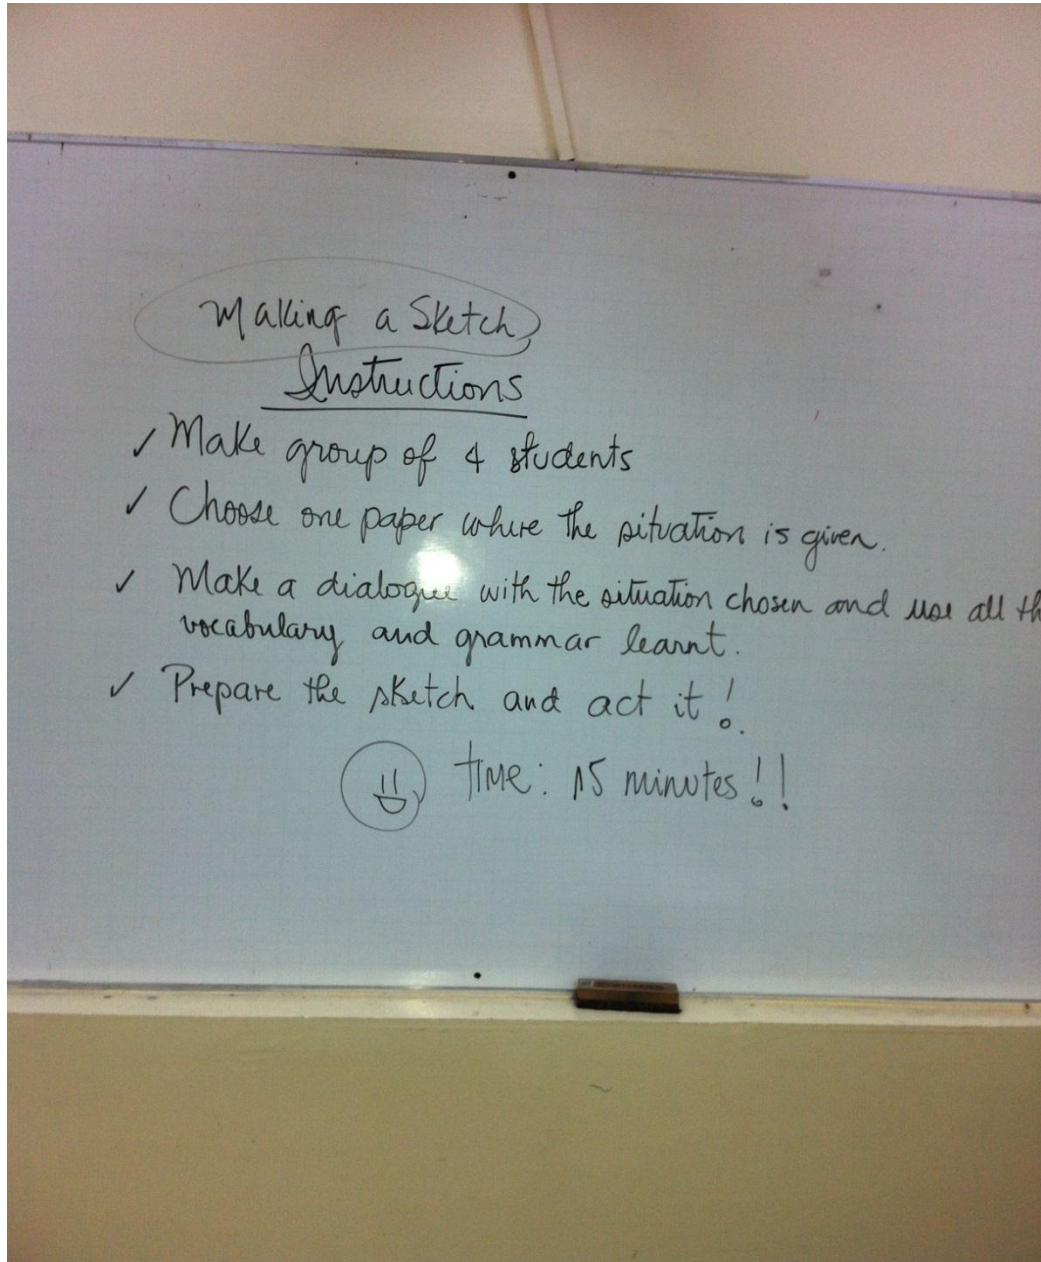 Making a Sketch
Instructions
✓ Make group of 4 students
✓ Choose one paper where the situation is given.
✓ Make a dialogue with the situation chosen and use all th
vocabulary and grammar learnt.
✓ Prepare the sketch and act it!
time: 15 minutes!!